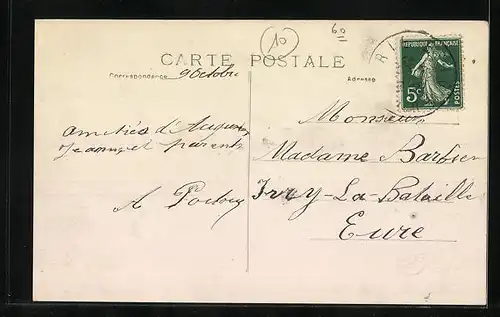 60
10
CARTE POSTALE
Correspondance
9 Octobre
Adresse
REPUBLIQUE FRANÇAISE
5c
POSTES
Monsieur
Madame Barbier
Ivry-La-Bataille
Eure
amitiés d'
et parents
A